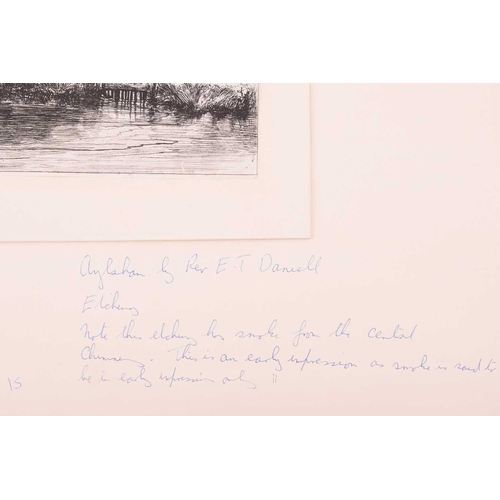 Aylsham by Rev E.T Daniell
Etching
Note this etching has smoke from the central
Chimney. This is an early impression as smoke is said to
be in early impression only !!
15